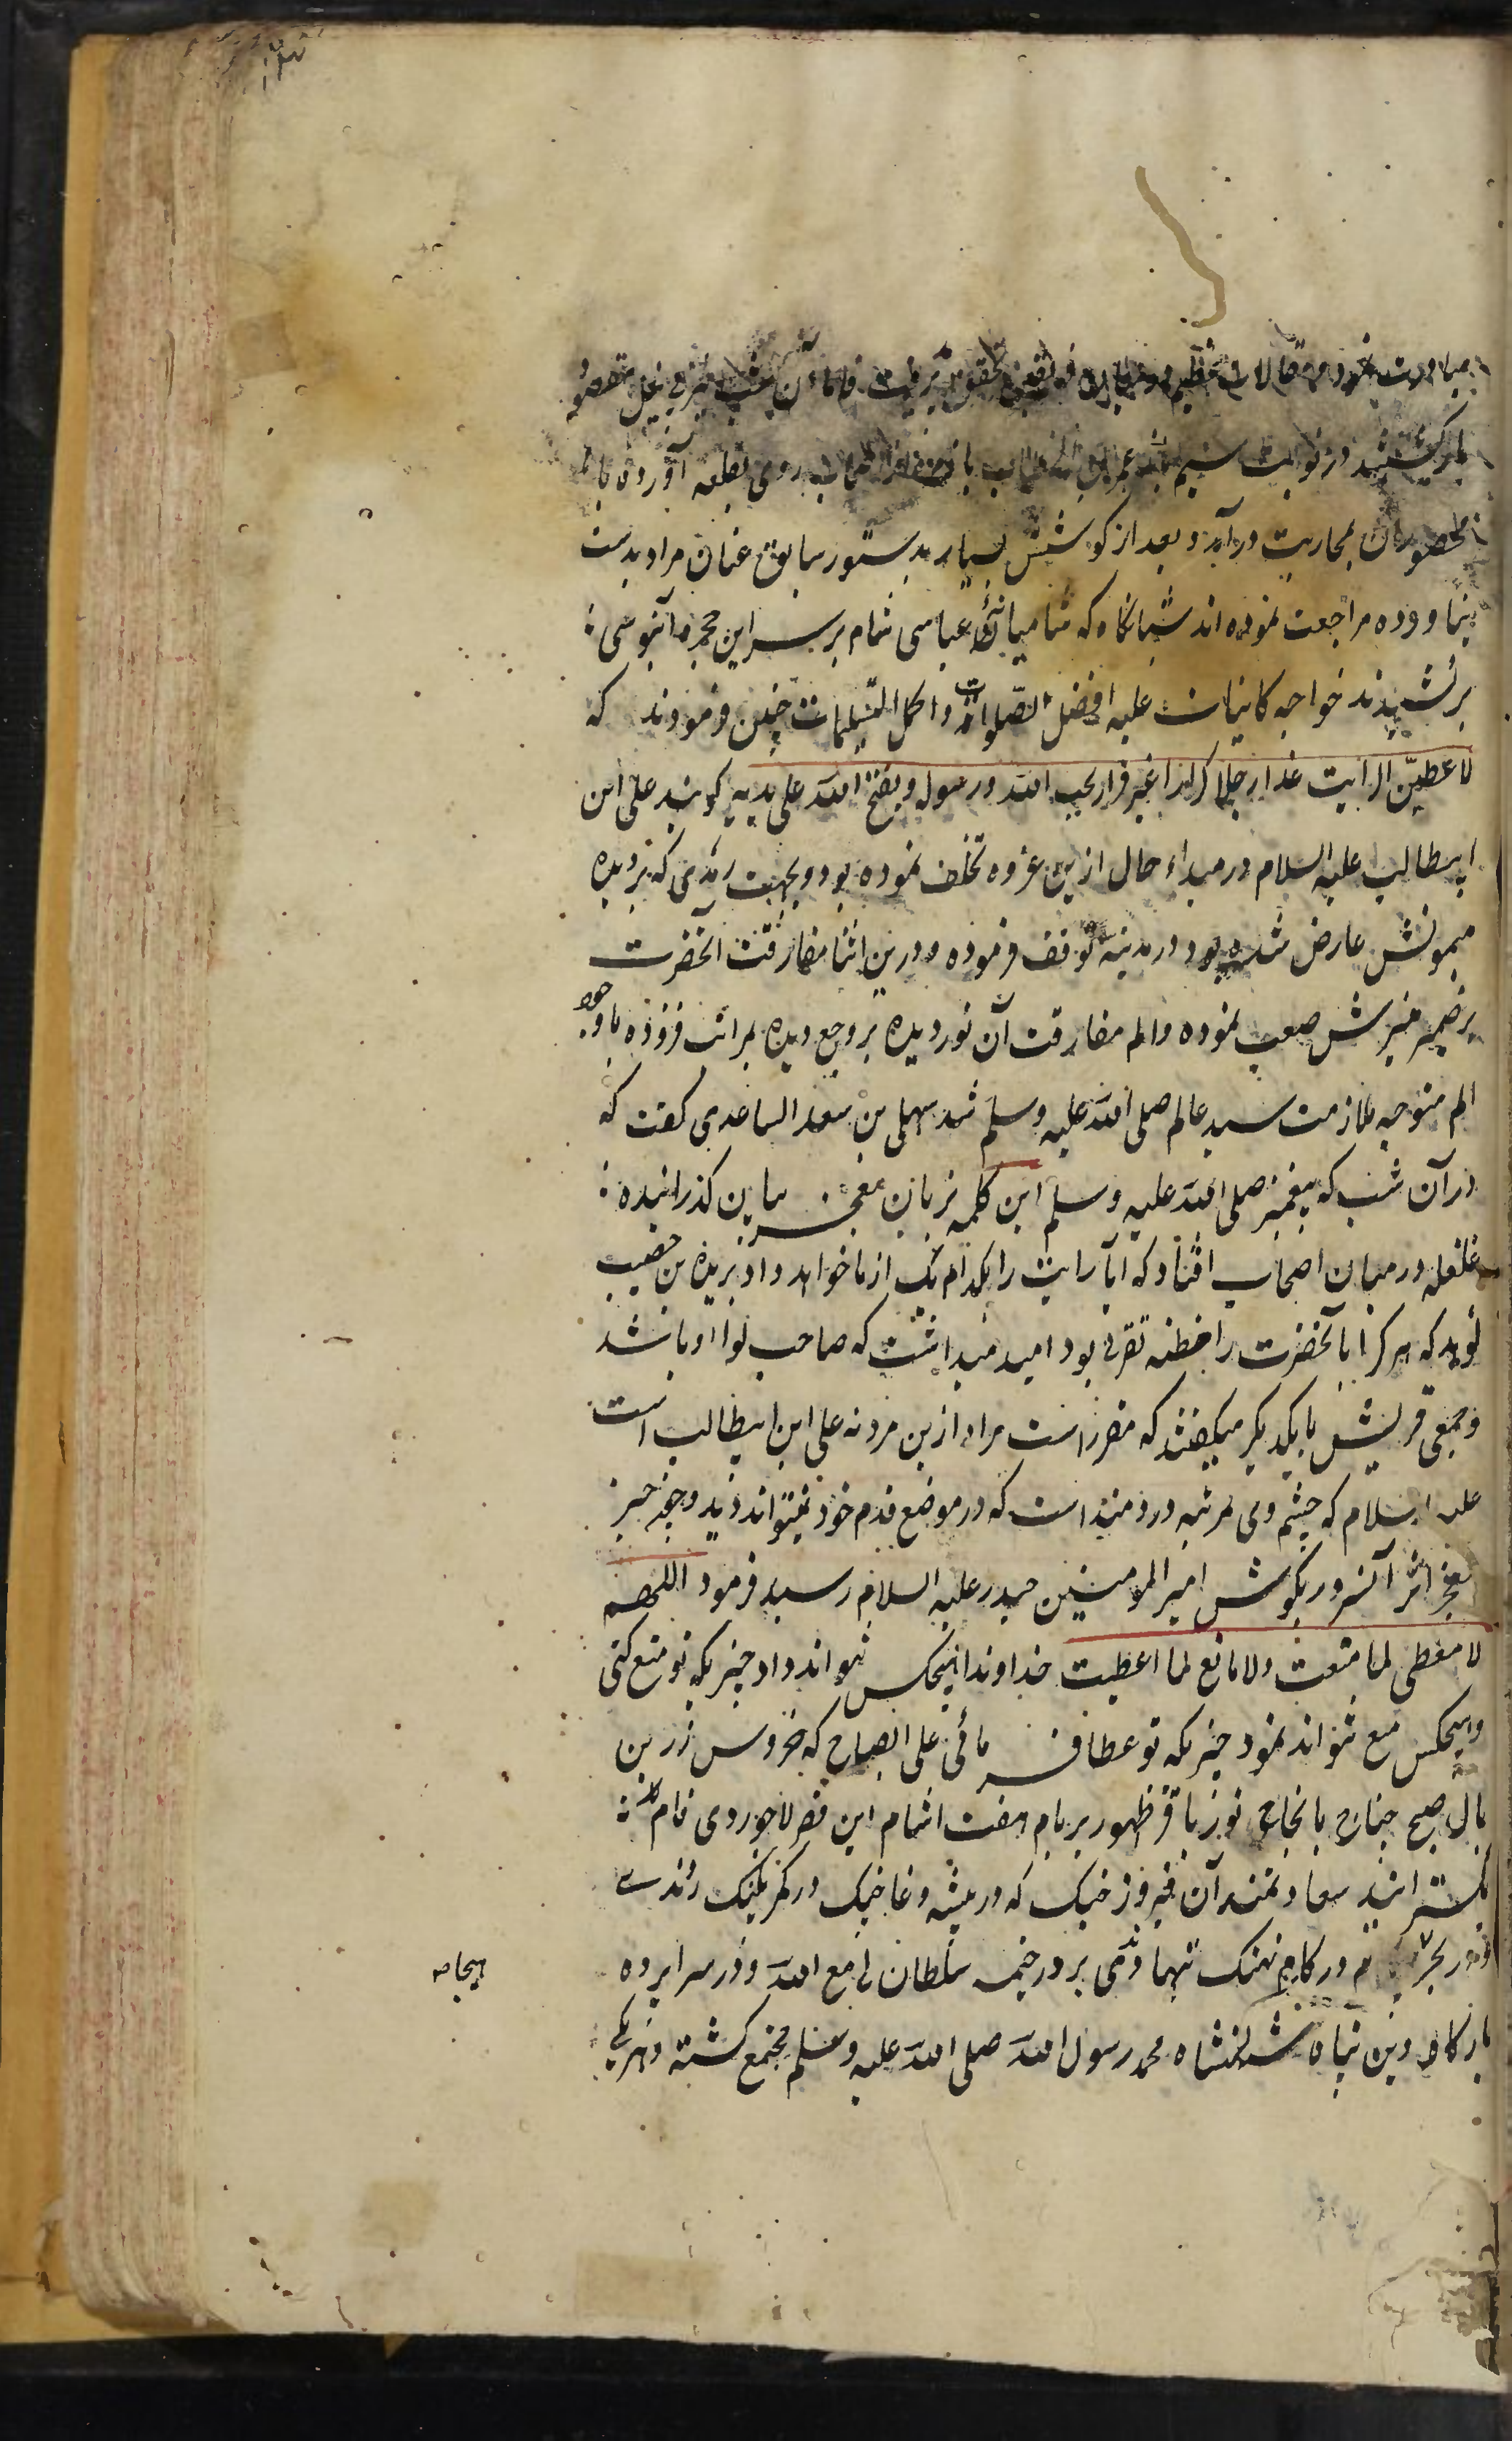 مبادرت نمود و مقاتلات عظیم فریقین تحقق پذیرفت فاما آن شب نیز بی نیل مقصود
بازگشتند در نوبت سیم عمر بن الخطاب روی بقلعه آورده با
محصوران بمحاربت درآمد و بعد از کوشش بسیار بدستور سابق عنان مراد بدست
نیاورده مراجعت نموده اند شبانگاه که شامیانهٔ عباسی شام بر سر این حجرهٔ آبنوسی
برکشیدند خواجه کاینات علیه افضل الصلوات و اکمل التسلیمات چنین فرمودند که
لاعطین الرایت غدا رجلا کرارا غیر فرار یحب الله و رسوله و یفتح الله علی یدیه گویند علی ابن
ابیطالب علیه السلام در مبداء حال ازین غزوه تخلف نموده بود و بجهت رمدی که بر دیده
میمونش عارض شده بود در مدینه توقف فرموده و درین اثنا مفارقت آنحضرت
بر ضمیر منیرش صعب نموده و الم مفارقت آن نور دیده بر وجع دیده بمراتب فزوده با وجود
الم متوجه ملازمت سید عالم صلی الله علیه وسلم شد سهل بن سعد الساعدی گفت که
در آن شب که پیغمبر صلی الله علیه وسلم این کلمه بزبان معجز بیان گذرانیده
غلغله در میان اصحاب افتاد که آیا رایت را بکدام یک از ما خواهد داد بریده بن حصیب
گوید که هر کرا با آنحضرت مظنه تقربی بود امید میداشت که صاحب لوا او باشد
و جمعی قریش با یکدیگر میگفتند که مقرر است مراد ازین مرد نه علی ابن ابیطالب است
علیه السلام که چشم وی بمرتبه دردمند است که در موضع قدم خود نمیتواند دید و چون خبر
معجز اثر آنسرور بگوش امیر المومنین حیدر علیه السلام رسید فرمود اللهم
لا معطی لما منعت ولا مانع لما اعطیت خداوندا هیچکس نتواند داد چیزیکه تو منع کنی
و هیچکس منع نتواند نمود چیزیکه تو عطا فرمائی علی الصباح که خروس زرین
بال صبح جناح با نجاح نور بافر ظهور بر بام هفت اشام این قصر لاجوردی فام
بگسترانید سعادتمند آن فیروز جنگ که در بیشه وغا جنگ در کفر پلنگ زندے
و در بحر در کام نهنگ تنها رفتی بر در خیمه سلطان لی مع الله و در سراپرده
بارگاه دین پناه شهنشاه محمد رسول الله صلی الله علیه وسلم مجتمع گشته و هر یکی
هیجا